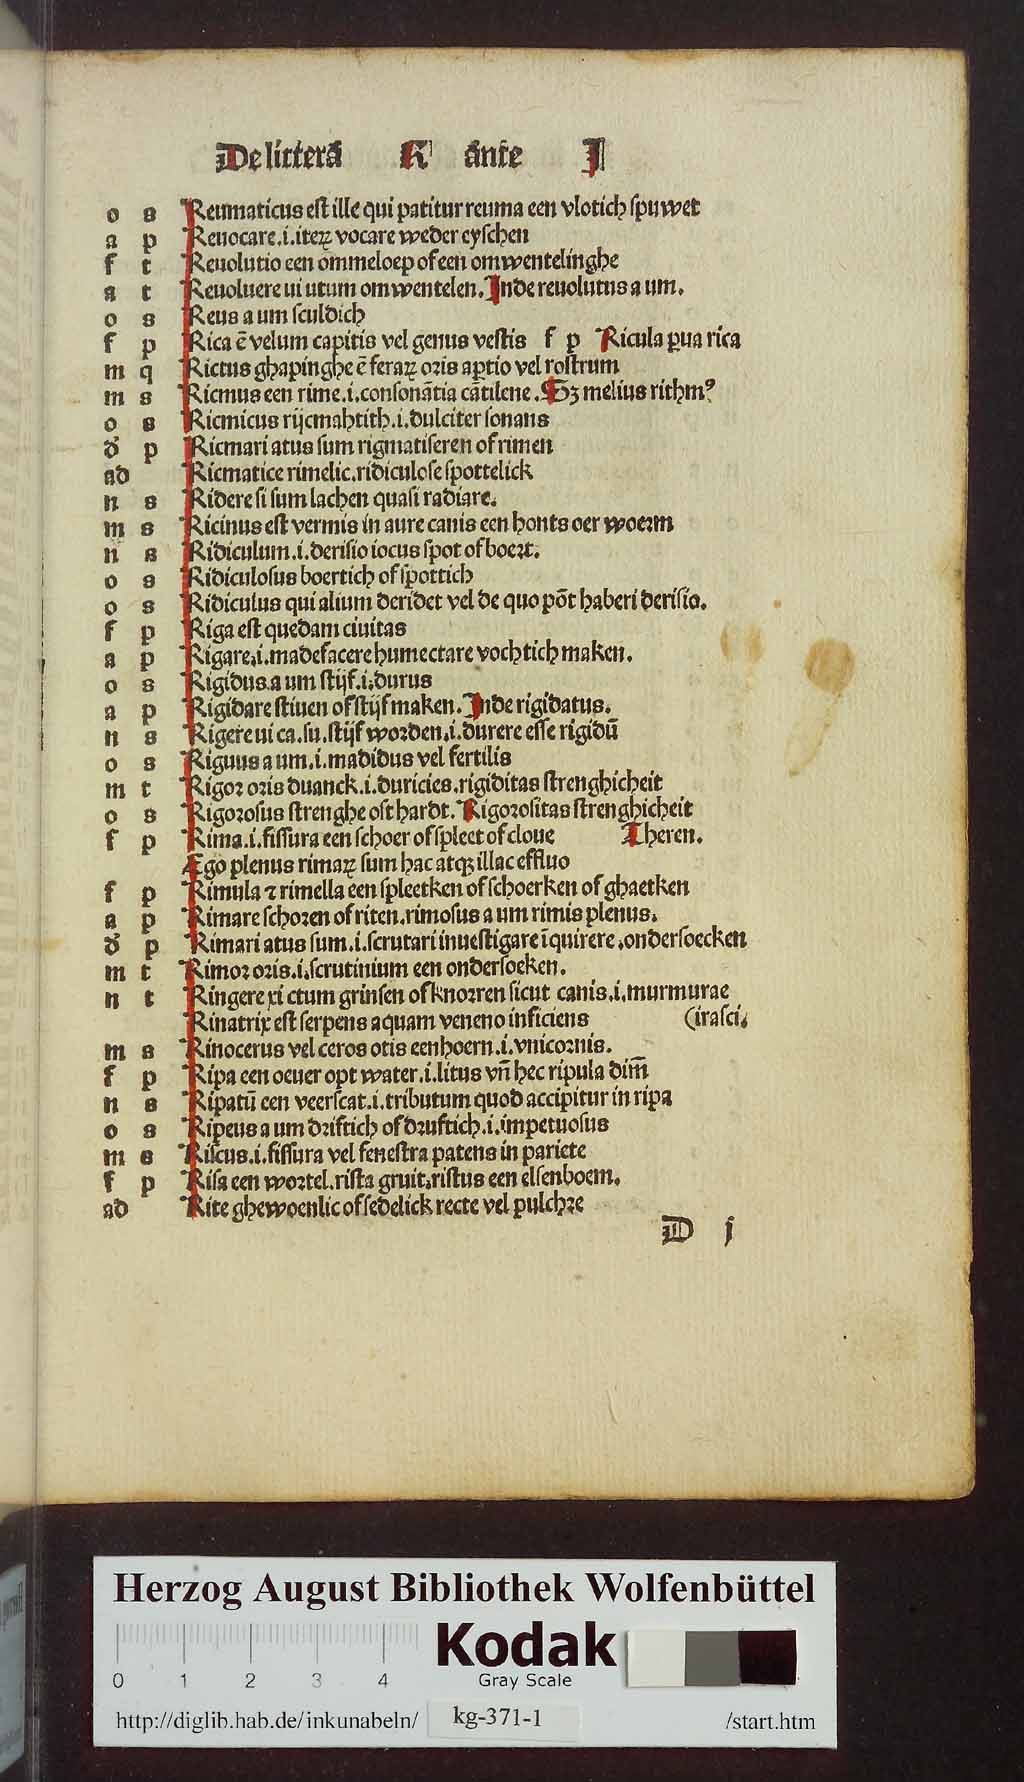 De litterā R ānte I
o s Reumaticus est ille qui patitur reuma een vlotich spuwet
a p Reuocare .i. iteꝝ vocare weder eyschen
f t Reuolutio een ommeloep of een omwentelinghe
a t Reuoluere ui utum omwentelen. Inde reuolutus a um.
o s Reus a um sculdich
f p Rica ē velum capitis vel genus vestis f p Ricula ꝑua rica
m q Rictus ghapinghe ē feraꝝ oris aꝑtio vel rostrum
m s Ricmus een rime .i. consonātia cātilene. Sꝫ melius rithmꝰ
o s Ricmicus rijcmahtith .i. dulciter sonans
ꝺ p Ricmari atus sum rigmatiseren of rimen
ad Ricmatice rimelic. ridiculose spottelick
n s Ridere si sum lachen quasi radiare.
m s Ricinus est vermis in aure canis een honts oer woerm
n s Ridiculum .i. derisio iocus spot of boert.
o s Ridiculosus boertich of spottich
o s Ridiculus qui alium deridet vel de quo pōt haberi derisio.
f p Riga est quedam ciuitas
a p Rigare .i. madefacere humectare vochtich maken.
o s Rigidus .a um stijf .i. durus
a p Rigidare stiuen of stijf maken. Inde rigidatus.
n s Rigere ui ca. su. stijf worden .i. durere esse rigidū
o s Riguus a um .i. madidus vel fertilis
m t Rigor oris duanck .i. duricies. rigiditas strenghicheit
o s Rigorosus strenghe oft hardt. Rigorositas strenghicheit
f p Rima .i. fissura een schoer of spleet of cloue Theren.
Ego plenus rimaꝝ sum hac atqꝫ illac effluo
f p Rimula ⁊ rimella een spleetken of schoerken of ghaetken
a p Rimare schoren of riten. rimosus a um rimis plenus.
ꝺ p Rimari atus sum .i. scrutari inuestigare īquirere. ondersoecken
m t Rimor oris .i. scrutinium een ondersoeken.
n t Ringere xi ctum grinsen of knorren sicut canis .i. murmurae
Rinatrix est serpens aquam veneno inficiens (irasci.
m s Rinocerus vel ceros otis eenhoern .i. vnicornis.
f p Ripa een oeuer opt water .i. litus vn̄ hec ripula dim̄
n s Ripatū een veerscat .i. tributum quod accipitur in ripa
o s Ripeus a um driftich of druftich .i. impetuosus
m s Riscus .i. fissura vel fenestra patens in pariete
f p Risa een wortel. rista gruit. ristus een elsenboem.
ad Rite ghewoenlic of sedelick recte vel pulchre
D j
Herzog August Bibliothek Wolfenbüttel
0 1 2 3 4
Kodak
Gray Scale
http://diglib.hab.de/inkunabeln/ kg-371-1 /start.htm